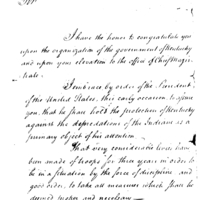 Sir
I have the honor to congratulate you
upon the organization of the government of Kentucky
and upon your elevation to the office of Chief Magis-
trate.
I embrace by order of the President
of the United States, this early occasion, to assure
you, that he shall hold the protection of Kentucky
against the depredations of the Indians as a
primary object of his attention.
That very considerable levies have
been made of troops for three years in order to
be in a situation by the force of discipline and
good order, to take all measures which shall be
deemed proper and necessary